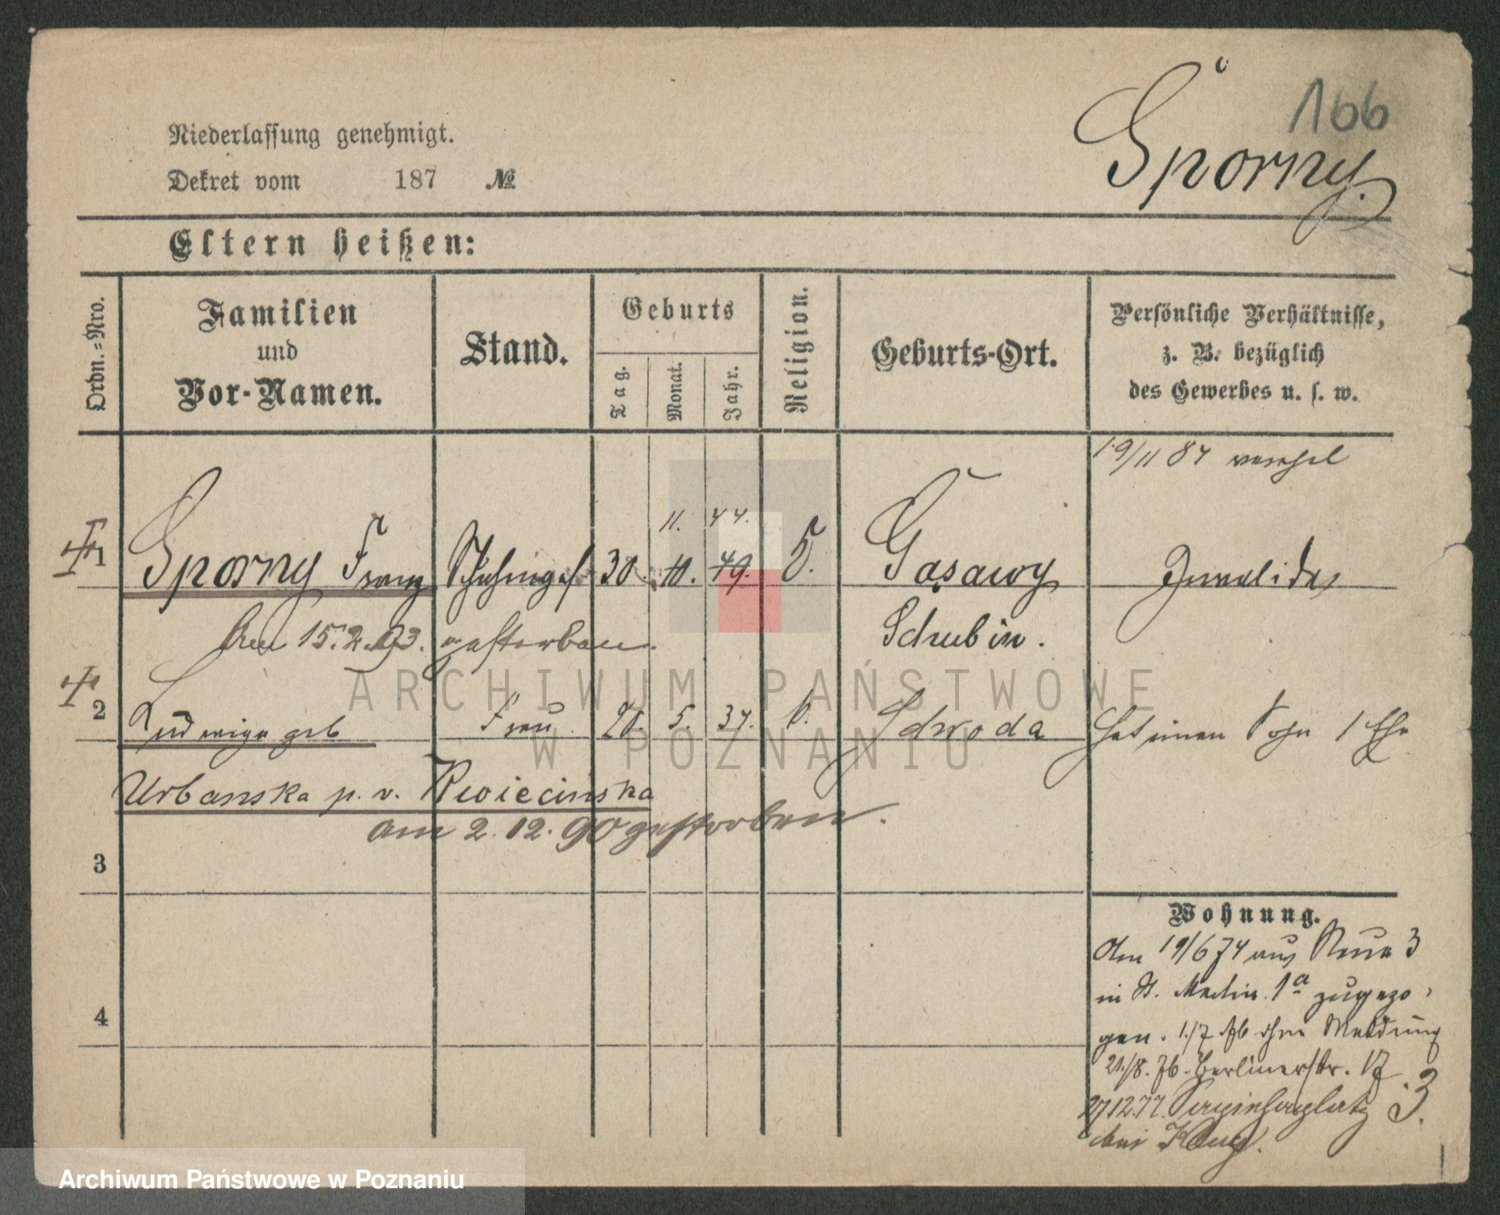 166
Sporny.
Niederlassung genehmigt.
Dekret vom 187 №
Eltern heißen:
Ordn.-Nro.
Familien
und
Vor-Namen.
Stand.
Geburts
Tag.
Monat.
Jahr.
Religion.
Geburts-Ort.
Persönliche Verhältnisse,
z. B. bezüglich
des Gewerbes u. s. w.
19/11 87
11. 44.
1 Sporny Franz 30. 10. 49. Gasawy Invalide
Schubin.
Am 15.2.93. gestorben.
2 Ludwiga geb Frau 20. 5. 37. Schroda Hat einen Sohn 1 Ehe
Urbanska p. v. Kwiecinska
am 2.12.90 gestorben.
3
4
Wohnung.
Am 19/6 74 aus Neue 3
in St. Martin 1a zugezo-
gen. 1/7 76 ohne Meldung
21/8. 76. Berlinerstr. 17
27/12.77. Sapiehaplatz 3.
bei
ARCHIWUM PAŃSTWOWE
W POZNANIU
Archiwum Państwowe w Poznaniu